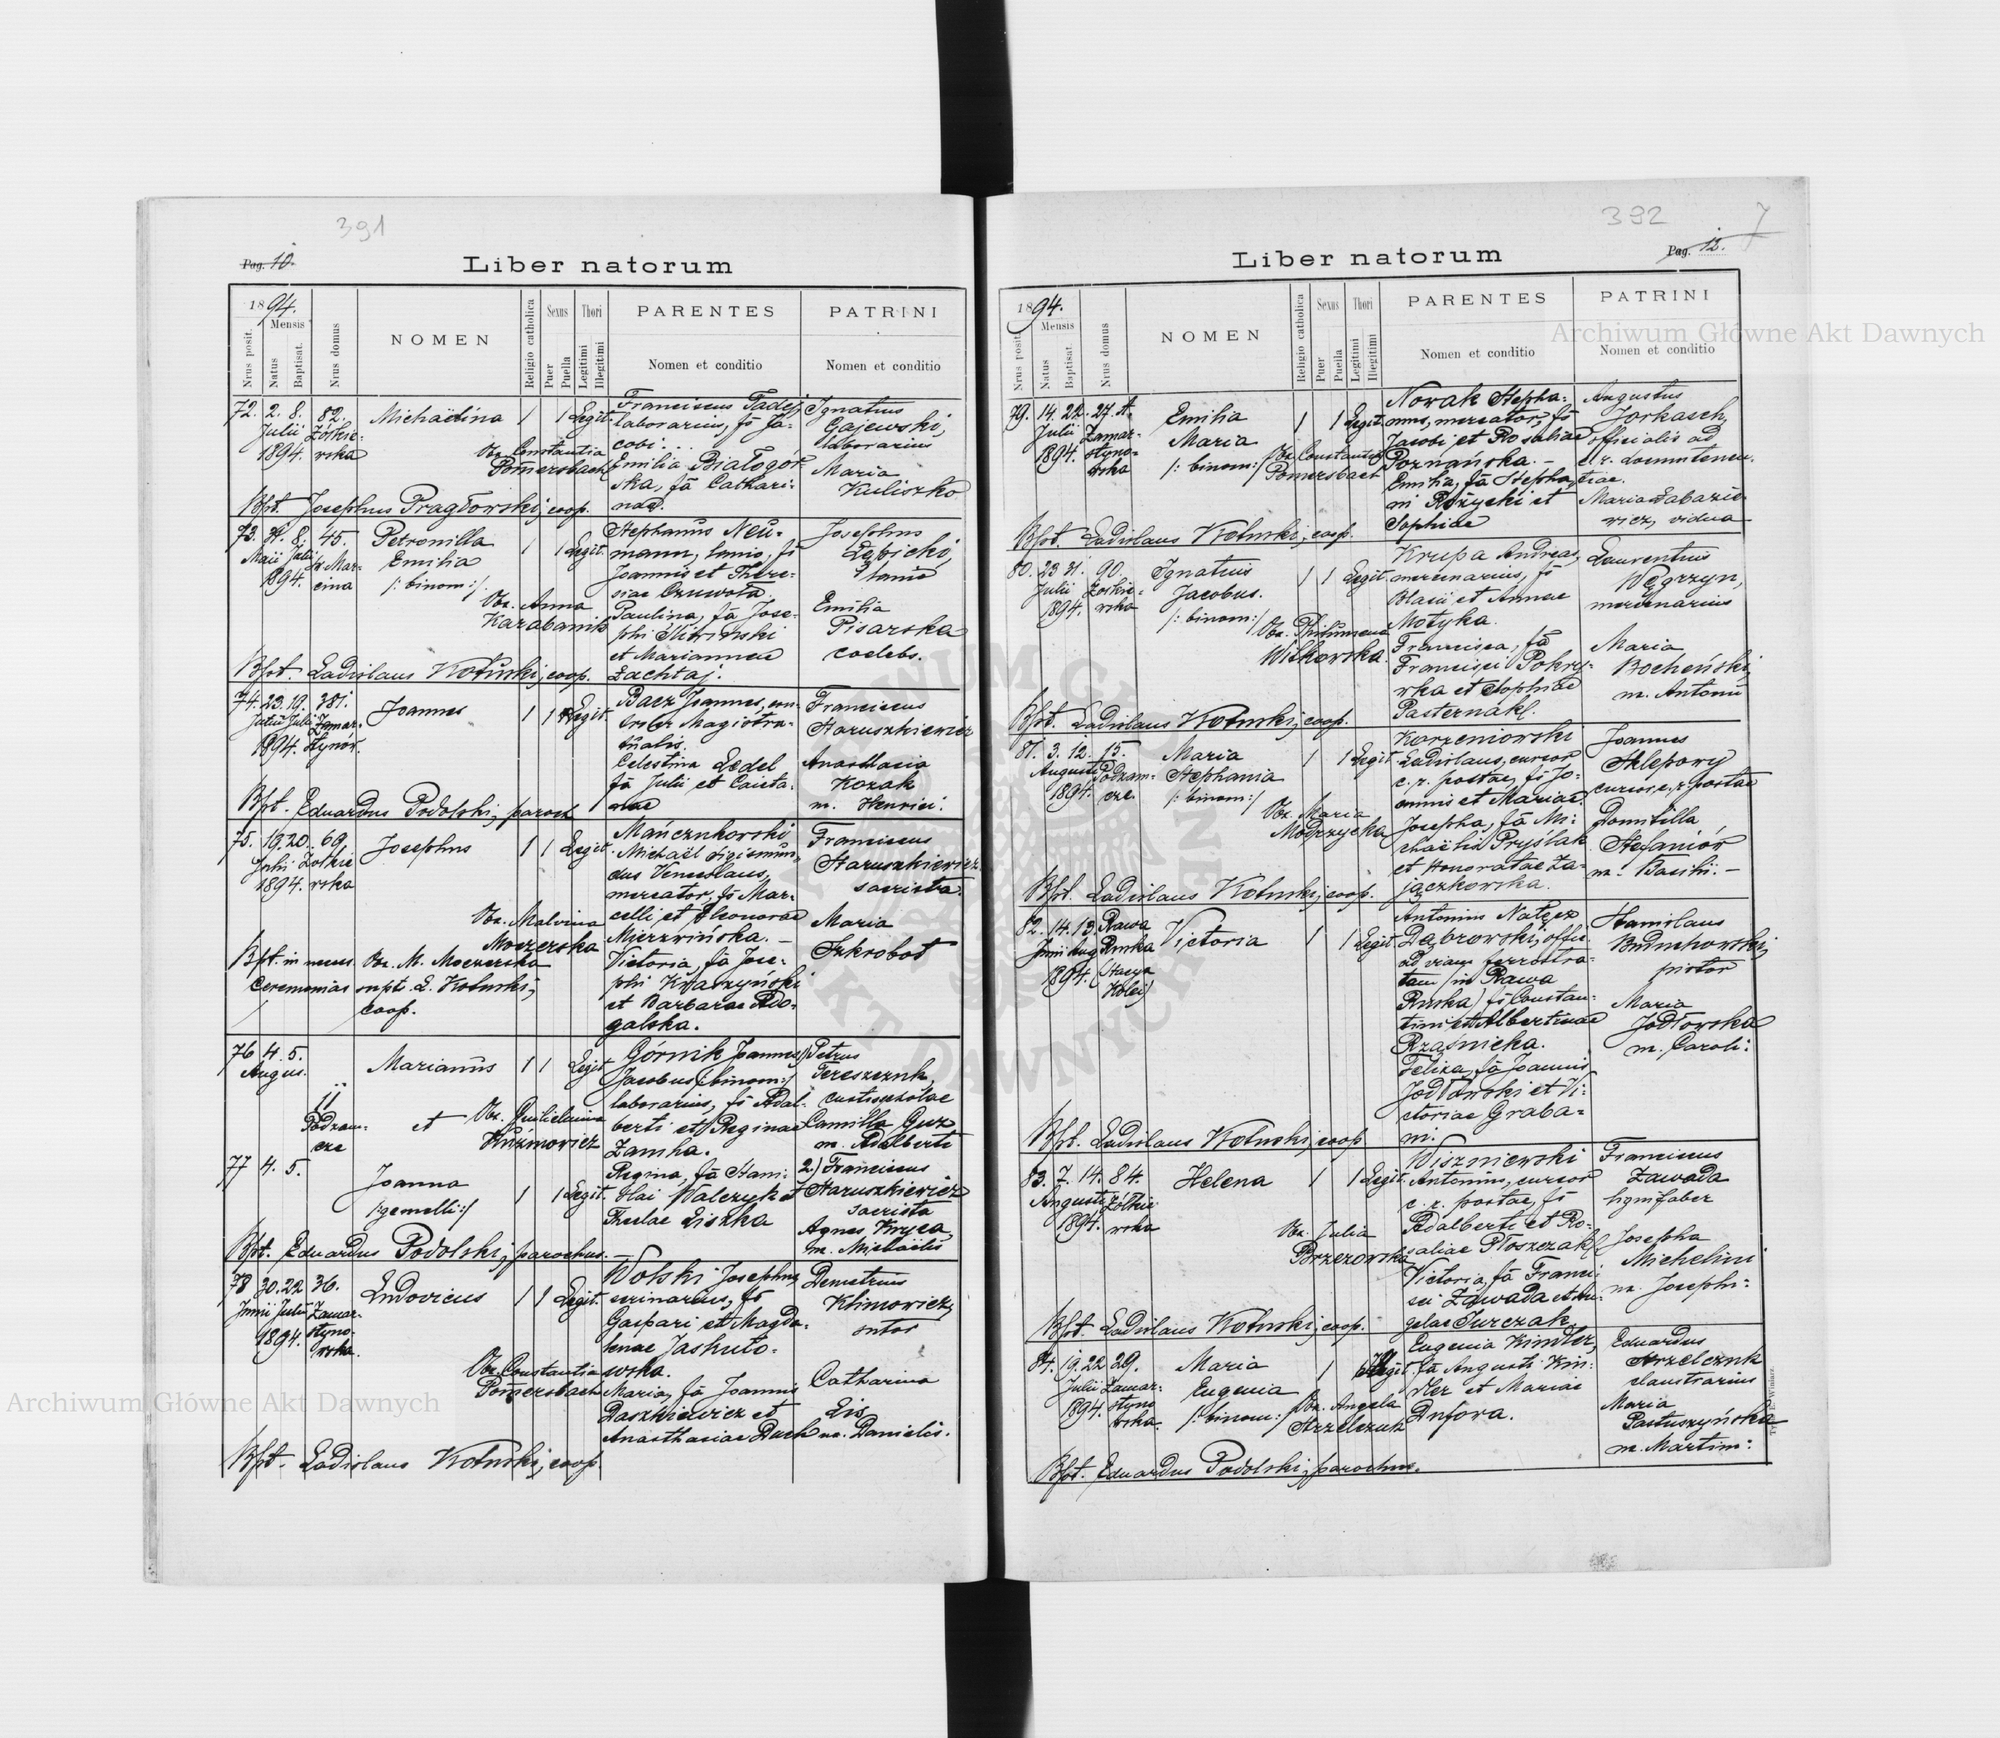 391
Pag. 10.
Liber natorum
1894.
Mensis
Nrus posit.
Natus
Baptisat.
Nrus domus
NOMEN
Religio catholica
Sexus
Puer
Puella
Thori
Legitimi
Illegitimi
PARENTES
Nomen et conditio
PATRINI
Nomen et conditio
72. 2. 8. 82.
Julii Żółkie-
1894. wska
Michaëlina 1 1 Legit.
Obs. Constantia
Pomersbach
Franciscus Tadej,
laborarius, fs Ja-
cobi...
Emilia Białogór-
ska, fa Cathari-
nae.
Ignatius
Gajewski,
laborarius
Maria
Kuliszko
Bpt. Josephus Pragłowski, coop.
73. 31. 8. 45.
Maii Julii Św. Mar-
1894. cina
Petronilla
Emilia
/: binom:/.
1 1 Legit.
Obs. Anna
Karabanik
Stephanus Neu-
mann, lanio, fs
Joannis et There-
siae Czuwota.
Paulina, fa Jose-
phi Śliwiński
et Mariannae
Zachtaj.
Josephus
Łepicki,
lanio
Emilia
Pisarska
coelebs.
Bpt. Ladislaus Kotuski, coop.
74. 23. 19. 381.
Julii Zamar-
1894. stynów.
Joannes 1 1 Legit.
Bacz Joannes,
Magistra-
tualis.
Celestina Ledel
fa Julii et Caieta-
nae
Franciscus
Staruszkiewicz
Anasthasia
Kozak
m. Henrici.
Bpt. Eduardus Podolski, paroch
75. 19. 20. 69.
Julii Żółkie
1894. wska
Josephus 1 1 Legit.
Obs. Malvina
Moczerska
Mańczukowski
Michaël Sigismun-
dus Venceslaus,
mercator, fs Mar-
celli et Eleonorae
Mierzwińska. —
Victoria, fa Jose-
phi Kwaszyński
et Barbarae Ro-
galska.
Franciscus
Staruszkiewicz
sacrista.
Maria
Szkrobot
Bpt. in neces. Obs. M. Moczerska
Ceremonias supt. L. Kotuski,
coop.
76. 4. 5.
Augus.
11
Podzam-
cze
Marianus 1 1 Legit
et
Obs. Guilielmina
Kuźmowicz
Górnik Joannes
Jacobus (:binom:)
laborarius, fs Adal-
berti et Reginae
Zamka.
Regina, fa Stani-
slai Walczyk et
Theclae Liszka
1) Petrus
Tereszczuk,
custos scholae
Camilla Guz
m. Adalberti
2.) Franciscus
Staruszkiewicz
sacrista
Agnes Krysa
m. Michaëlis
77 4. 5.
Joanna
/:gemelli:/
1 1 Legit.
Bpt. Eduardus Podolski, parochus. —
78. 30. 22 36.
Junii Julii Zamar-
1894. styno-
wska.
Ludovicus 1 1 Legit.
Obs. Constantia
Pomersbach
Wolski Josephus,
scrinarius, fs
Gaspari et Magda-
lenae Jaskuto-
wska.
Maria, fa Joannis
Daszkiewicz et
Anasthasiae Duch
Demetrius
Klimowicz,
sutor
Catharina
Lis
m. Danielis.
Bpt. Ladislaus Kotuski, coop.
392
7
Pag. 12.
Liber natorum
1894.
Mensis
Nrus posit.
Natus
Baptisat.
Nrus domus
NOMEN
Religio catholica
Sexus
Puer
Puella
Thori
Legitimi
Illegitimi
PARENTES
Nomen et conditio
PATRINI
Nomen et conditio
79. 14. 22. 27. A.
Julii Zamar-
1894. styno-
wska
Emilia
Maria
/: binom:/
1 1 Legit.
Obs. Constantia
Pomersbach
Nowak Stepha-
nus, mercator, fs
Jacobi et Rosaliae
Poznańska. —
Emilia, fa Stepha-
ni Różycki et
Sophiae
Augustus
Jorkasch,
officialis ad
c. r. locumtenen-
tiae.
Maria Łabazie
wicz, vidua
Bpt. Ladislaus Kotuski, coop.
80. 23 31. 90.
Julii Żółkie-
1894. wska
Ignatius
Jacobus.
/: binom:/
1 1 Legit.
Obs. Philumena
Witkowska.
Krupa Andreas,
mercenarius, fs
Blasii et Annae
Motyka.
Francisca, fa
Francisci Pokry-
wka et Sophiae
Pasternak.
Laurentius
Węgrzyn,
mercenarius
Maria
Bocheński,
m. Antonii
Bpt. Ladislaus Kotuski, coop.
81. 3. 12. 15.
Augusti Podzam-
1894. cze.
Maria
Stephania
/: binom:/
1 1 Legit.
Obs. Maria
Modrzycka
Korzeniowski
Ladislaus, cursor
c. r. postae, fs Jo-
annis et Mariae.
Josepha, fa Mi-
chaëlis Pryślak
et Honoratae Za-
jączkowska.
Joannes
Sklepowy
cursor c. r. postae
Domitilla
Stefaniów
m. Basilii. —
Bpt. Ladislaus Kotuski, coop.
82. 14. 13. Rawa
Junii Aug. Ruska
1894. (Stacya
Kolei)
Victoria 1 1 Legit
Antonius Nałęcz
Dąbrowski, offic.
ad viam ferrostra-
tam (in Rawa
Ruska) fs Constan-
tini et Albertinae
Rząśnicka.
Feliza, fa Joannis
Jodłowski et Vi-
ctoriae Graba-
ni.
Stanislaus
Bnduchowski,
pistor
Maria
Jodłowska
m. Caroli.
Bpt. Ladislaus Kotuski, coop
83. 7. 14. 84.
Augusti Żółkie
1894. wska
Helena 1 1 Legit.
Obs. Julia
Brzezowska
Wiszniewski
Antonius, cursor
c. r. postae, fs
Adalberti et Ro-
saliae Płoszczak.
Victoria, fa Franci-
sci Zawada et An-
gelae Jurczak.
Franciscus
Zawada
lignifaber
Josepha
Michelini
m. Josephi.
Bpt. Ladislaus Kotuski, coop.
84. 19. 22 29.
Julii Zamar-
1894. styno
wska.
Maria
Eugenia
/: binom:/
1 Illegit.
Obs. Angela
Strzelczuk
Eugenia Kindler,
fa Augusti Kin-
dler et Mariae
Dufora.
Eduardus
Strzelczuk
claustrarius
Maria
Pastuszyńska
m. Martini.
Bpt. Eduardus Podolski, parochus.
Archiwum Główne Akt Dawnych
Archiwum Główne Akt Dawnych